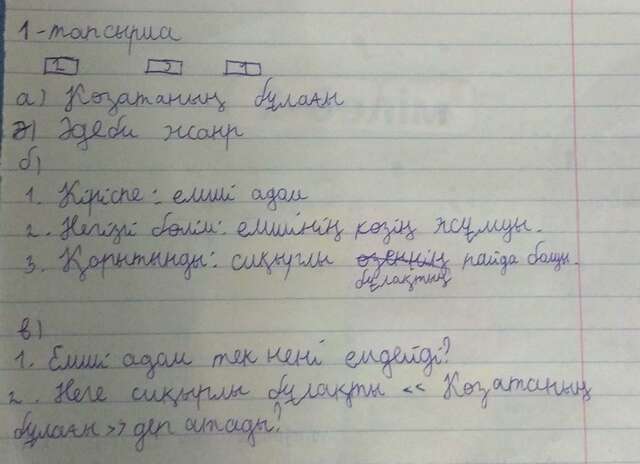 1-тапсырма
2 3 1
а) Көзатаның бұлағы
ә) Әдеби жанр
б)
1. Кіріспе: емші адам
2. Негізгі бөлім: емшінің көзің жұмды.
3. Қорытынды: сиқырлы өзеннің пайда болды.
бұлақтың
в)
1. Емші адам тек нені емдейді?
2. Неге сиқырлы бұлақты << Көзатаның
бұлағы >> деп атады?